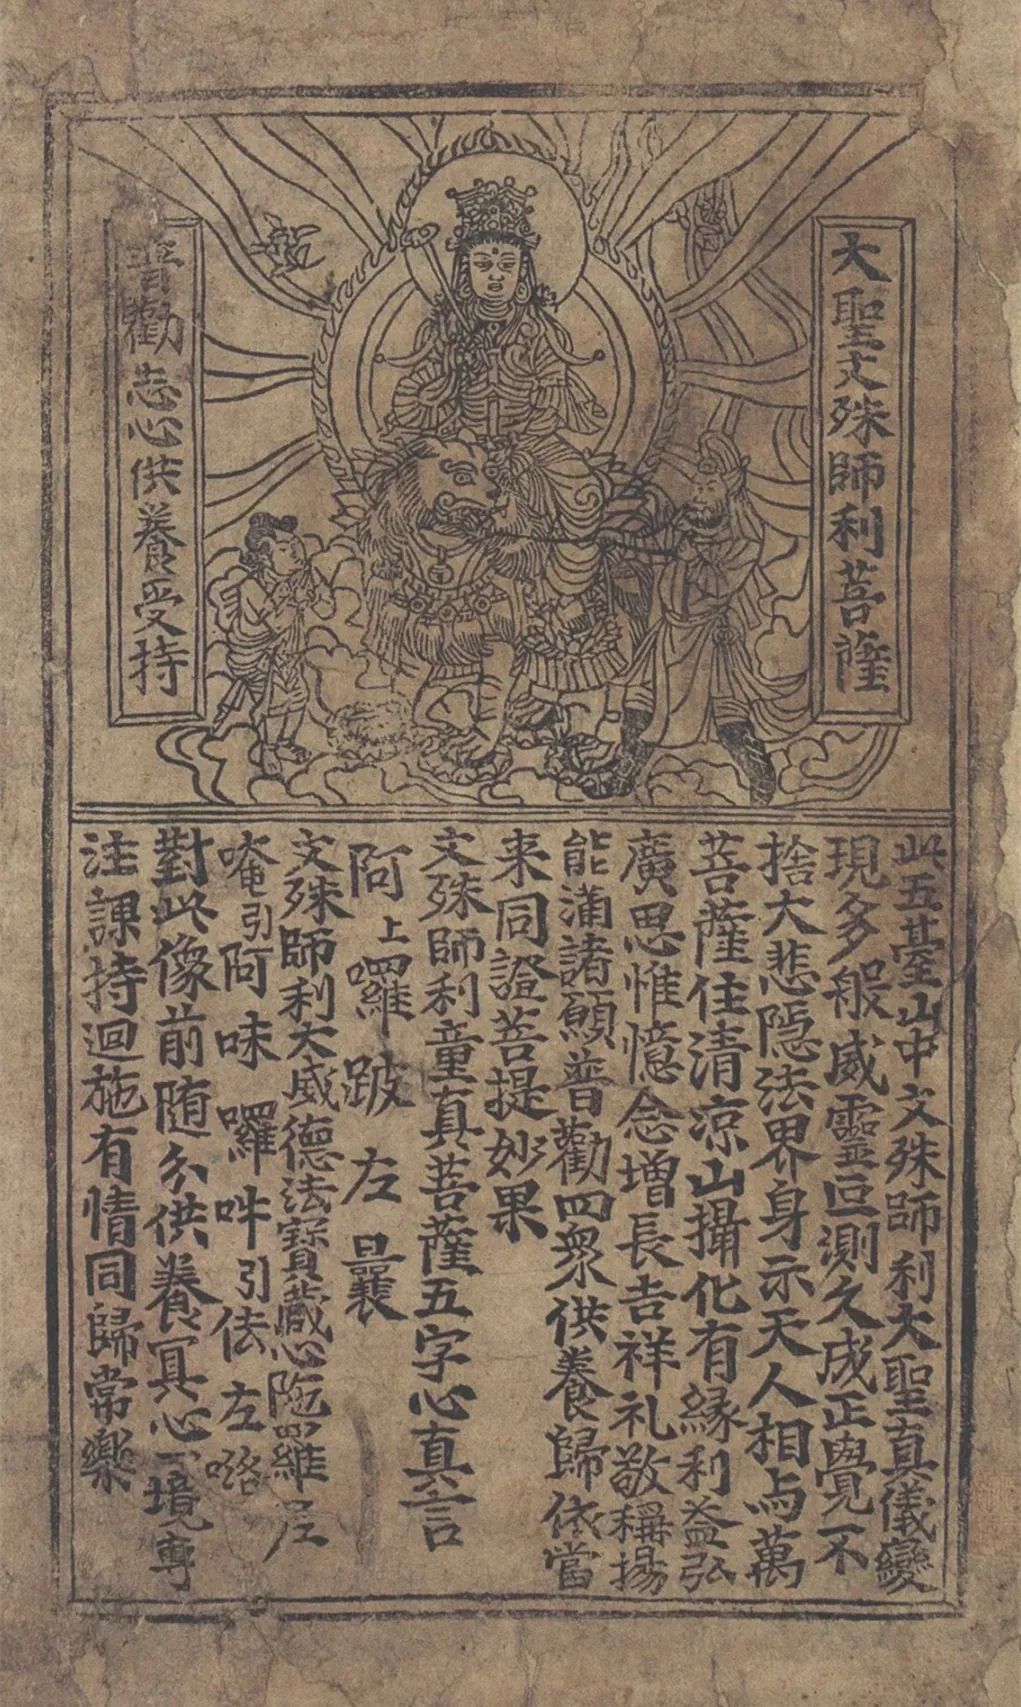 大聖文殊師利菩薩
普勸志心供養受持
此五臺山中文殊師利大聖真儀變
現多般威靈叵測久成正覺不
捨大悲隱法界身示天人相与萬
菩薩住清涼山攝化有緣利益弘
廣思惟憶念增長吉祥礼敬稱揚
能滿諸願普勸四衆供養歸依當
来同證菩提妙果
文殊師利童真菩薩五字心真言
阿上囉 跛 左 曩
文殊師利大威德法寶藏心陁羅尼
唵引阿味囉吽引佉左咯
對此像前随分供養冥心一境專
注課持迴施有情同歸常樂